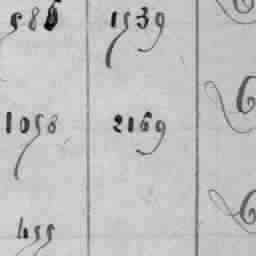 586 1539
1058 2169
455